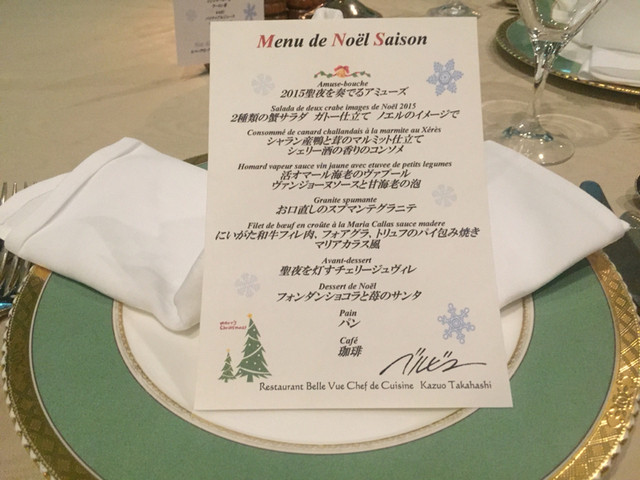 Menu de Noël Saison
Amuse-bouche
2015聖夜を奏でるアミューズ
Salada de deux crabe images de Noël 2015
2種類の蟹サラダ ガトー仕立て ノエルのイメージで
Consommé de canard challandais à la marmite au Xérès
シャラン産鴨と茸のマルミット仕立て
シェリー酒の香りのコンソメ
Homard vapeur sauce vin jaune avec etuvee de petits legumes
活オマール海老のヴァプール
ヴァンジョーヌソースと甘海老の泡
Granite spumante
お口直しのスプマンテグラニテ
Filet de bœuf en croûte à la Maria Callas sauce madere
にいがた和牛フィレ肉、フォアグラ、トリュフのパイ包み焼き
マリアカラス風
Avant-dessert
聖夜を灯すチェリージュヴィレ
Dessert de Noël
フォンダンショコラと苺のサンタ
Pain
パン
Café
珈琲
merry
Christmas!
ベルビュー
Restaurant Belle Vue Chef de Cuisine Kazuo Takahashi